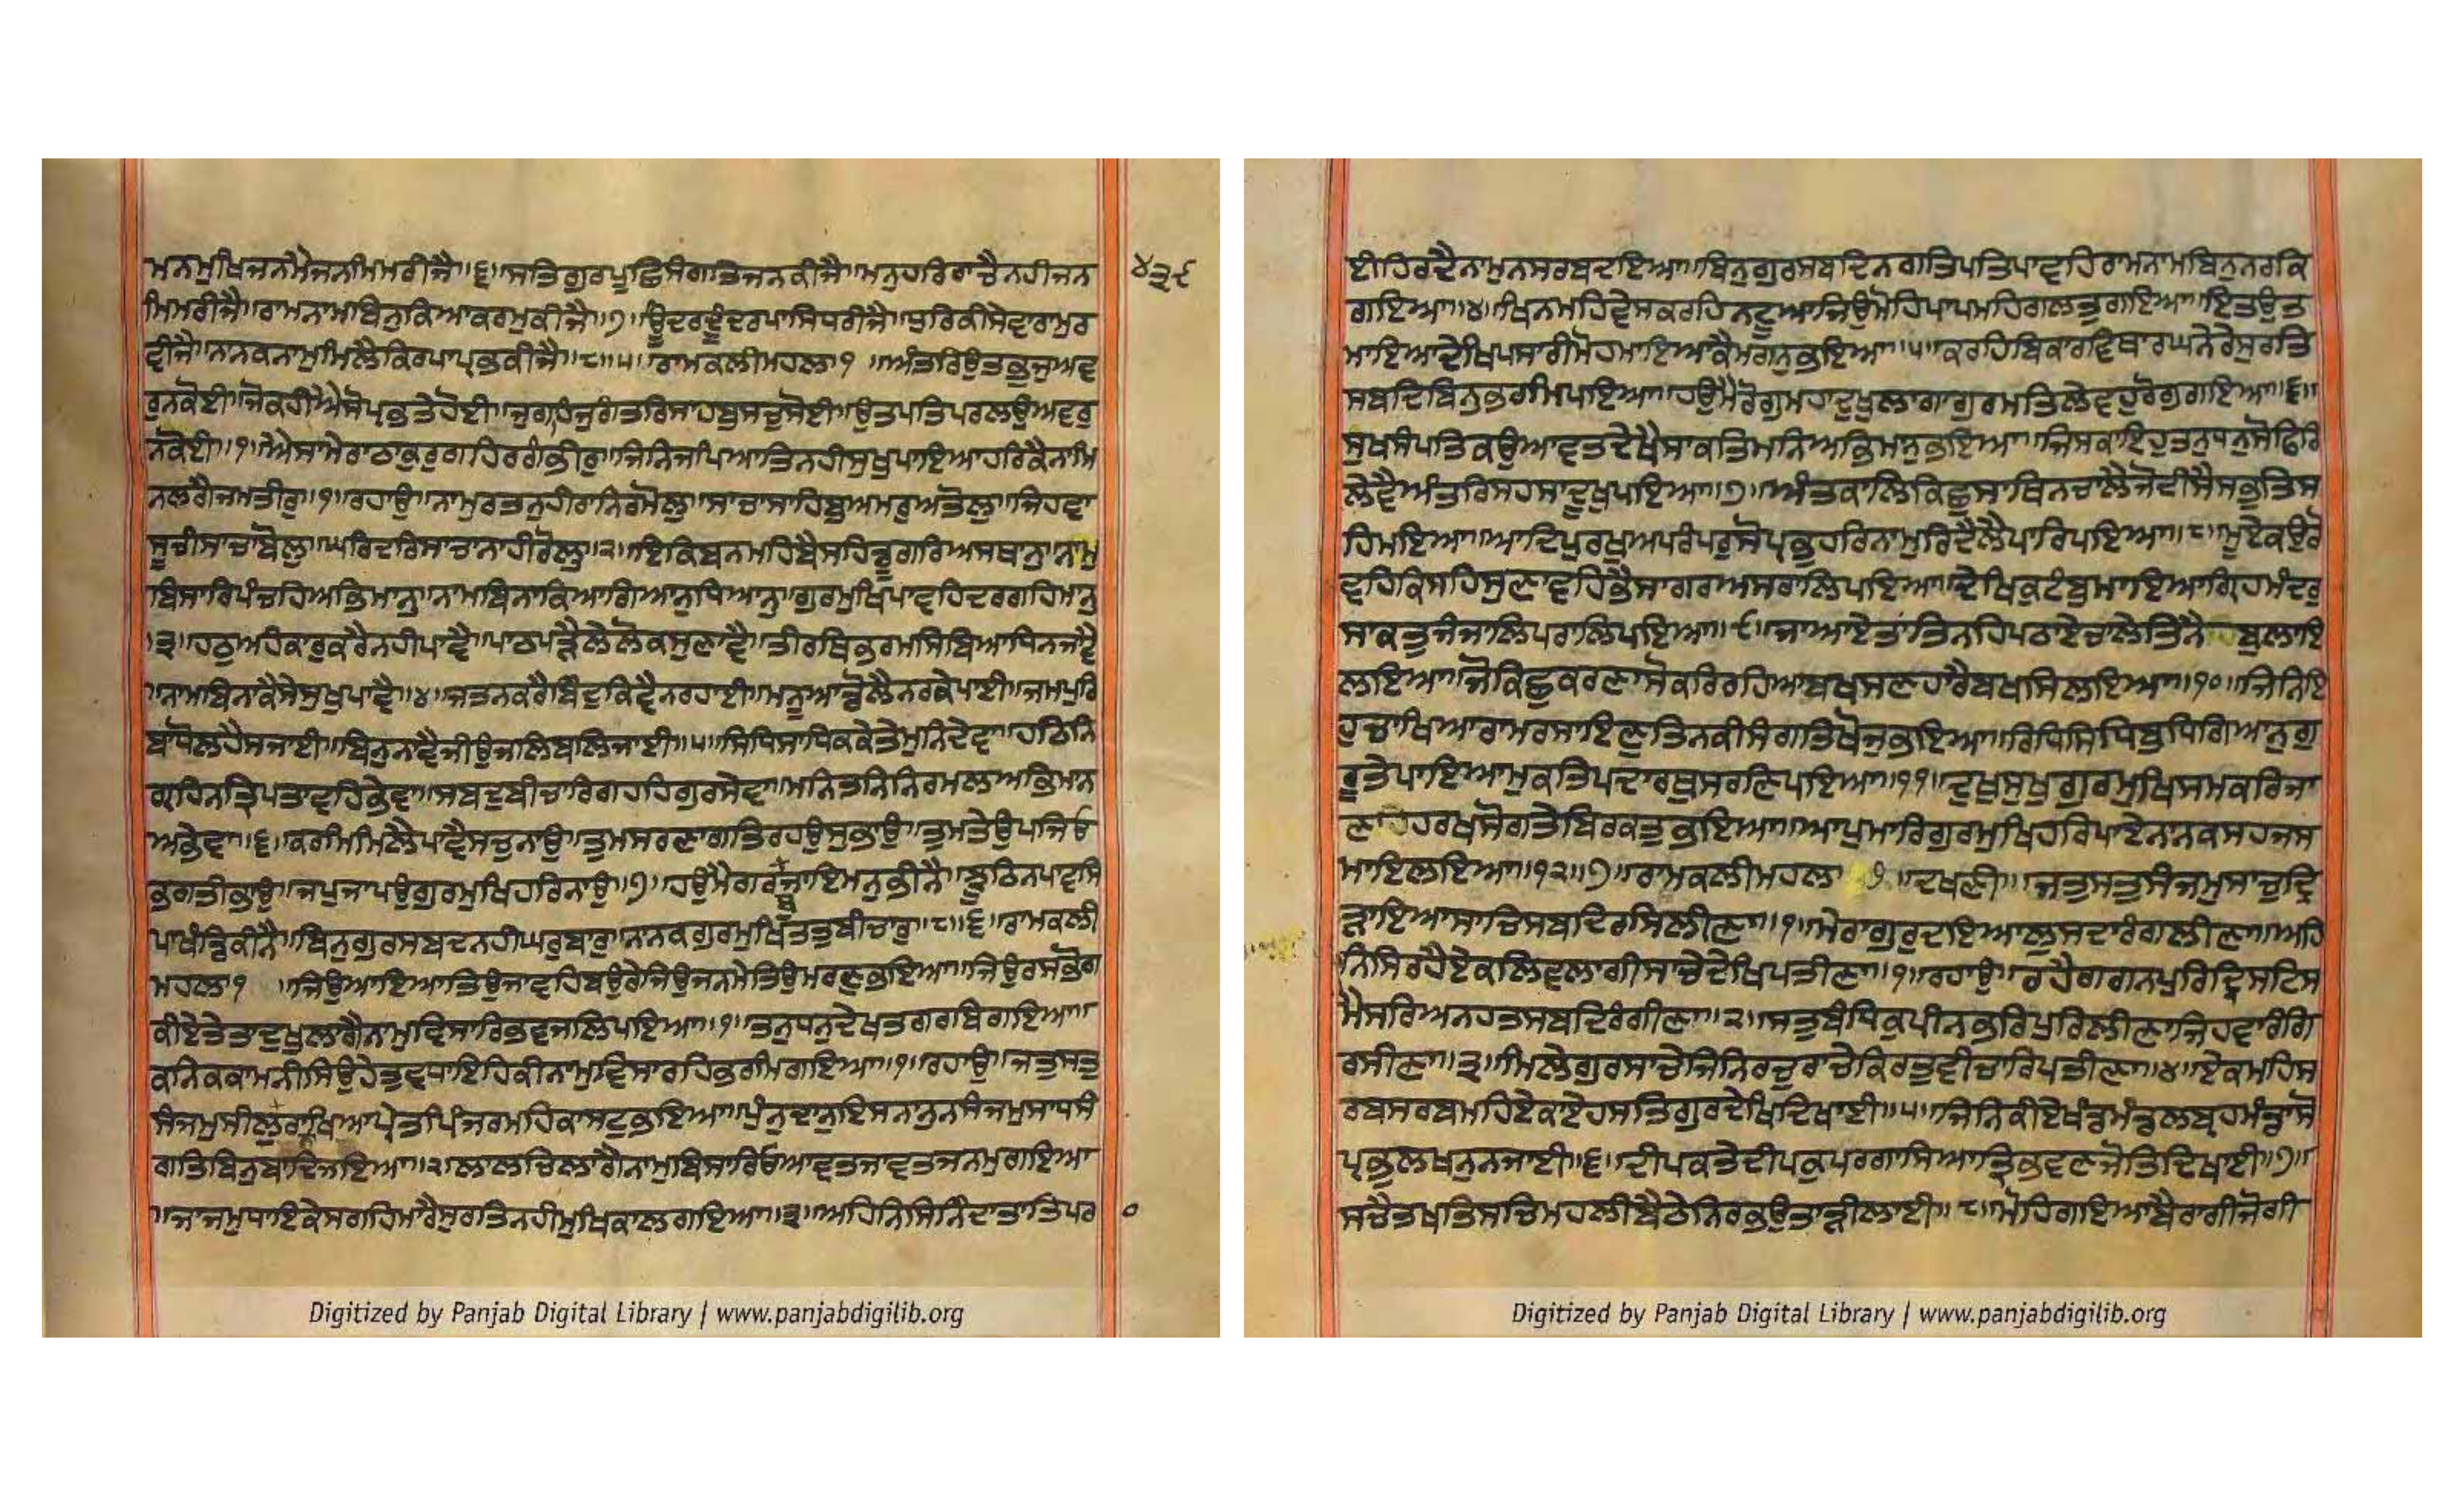 ਮਨਮੁਖਿਜਨਮੈਜਨਮਿਮਰੀਜੈ॥੬॥ਸਤਿਗੁਰਪੂਛਿਸੰਗਤਿਜਨਕੀਜੈ॥ਮਨੁਹਰਿਰਾਚੈਨਹੀਜਨ
੪੩੯
ਮਿਮਰੀਜੈ॥ਰਾਮਨਾਮਬਿਨੁਕਿਆਕਰਮੁਕੀਜੈ॥੭॥ਊਂਦਰਦੂੰਦਰਪਾਸਿਧਰੀਜੈ॥ਧੁਰਿਕੀਸੇਵਾਰਾਮੁਰ
ਵੀਜੈ॥ਨਾਨਕਨਾਮੁਮਿਲੈਕਿਰਪਾਪ੍ਰਭਕੀਜੈ॥੮॥੫॥ਰਾਮਕਲੀਮਹਲਾ੧ ॥ਅੰਤਰਿਉਤਭੁਜੁਅਵ
ਰੁਨਕੋਈ॥ਜੋਕਹੀਐਸੋਪ੍ਰਭਤੇਹੋਈ॥ਜੁਗਹਜੁਗੰਤਰਿਸਾਹਬੁਸਚੁਸੋਈ॥ਉਤਪਤਿਪਰਲਉਅਵਰੁ
ਨਕੋਈ॥੧॥ਐਸਾਮੇਰਾਠਾਕੁਰੁਗਹਿਰਗੰਭੀਰੁ॥ਜਿਨਿਜਪਿਆਤਿਨਹੀਸੁਖੁਪਾਇਆਹਰਿਕੈਨਾਮਿ
ਨਲਗੈਜਮਤੀਰੁ॥੧॥ਰਹਾਉ॥ਨਾਮੁਰਤਨੁਹੀਰਾਨਿਰਮੋਲੁ॥ਸਾਚਾਸਾਹਿਬੁਅਮਰੁਅਤੋਲੁ॥ਜਿਹਵਾ
ਸੂਚੀਸਾਚਾਬੋਲੁ॥ਘਰਿਦਰਿਸਾਚਾਨਾਹੀਰੋਲੁ॥੨॥ਇਕਿਬਨਮਹਿਬੈਸਹਿਡੂਗਰਿਅਸਥਾਨੁ॥ਨਾਮੁ
ਬਿਸਾਰਿਪੰਚਹਿਅਭਿਮਾਨੁ॥ਨਾਮਬਿਨਾਕਿਆਗਿਆਨੁਧਿਆਨੁ॥ਗੁਰਮੁਖਿਪਾਵਹਿਦਰਗਹਿਮਾਨੁ
॥੩॥ਹਠੁਅਹੰਕਾਰੁਕਰੈਨਹੀਪਾਵੈ॥ਪਾਠਪੜੈਲੇਲੋਕਸੁਣਾਵੈ॥ਤੀਰਥਿਭਰਮਸਿਬਿਆਧਿਨਜਾਵੈ
॥ਨਾਮਬਿਨਾਕੈਸੇਸੁਖੁਪਾਵੈ॥੪॥ਜਤਨਕਰੈਬਿੰਦੁਕਿਵੈਨਰਹਾਈ॥ਮਨੂਆਡੋਲੈਨਰਕੇਪਾਈ॥ਜਮਪੁਰਿ
ਬਾਧੋਲਹੈਸਜਾਈ॥ਬਿਨੁਨਾਵੈਜੀਉਜਲਿਬਲਿਜਾਈ॥੫॥ਸਿਧਿਸਾਧਿਕਕੇਤੇਮੁਨਿਦੇਵਾ॥ਹਠਿਨਿ
ਗ੍ਰਹਿਨਤ੍ਰਿਪਤਾਵਹਿਭੇਵਾ॥ਸਬਦੁਬੀਚਾਰਿਗਹਹਿਗੁਰਸੇਵਾ॥ਮਨਿਤਨਿਨਿਰਮਲਅਭਿਮਾਨ
ਅਭੇਵਾ॥੬॥ਕਰਮਿਮਿਲੈਪਾਵੈਸਚੁਨਾਉ॥ਤੁਮਸਰਣਾਗਤਿਰਹਉਸੁਭਾਉ॥ਤੁਮਤੇਉਪਜਿਓ
ਭਗਤੀਭਾਉ॥ਜਪੁਜਾਪਉਗੁਰਮੁਖਿਹਰਿਨਾਉ॥੭॥ਹਉਮੈਗਰਬੁਜਾਇਮਨੁਭੀਨੈ॥ਝੂਠਿਨਪਾਵਸਿ
ਪਾਖੰਡਿਕੀਨੈ॥ਬਿਨੁਗੁਰਸਬਦਨਹੀਘਰੁਬਾਰੁ॥ਨਾਨਕਗੁਰਮੁਖਿਤਤੁਬੀਚਾਰੁ॥੮॥੬॥ਰਾਮਕਲੀ
ਮਹਲਾ੧ ॥ਜਿਉਆਇਆਤਿਉਜਾਵਹਿਬਉਰੇਜਿਉਜਨਮੇਤਿਉਮਰਣੁਭਇਆ॥ਜਿਉਰਸਭੋਗ
ਕੀਏਤੇਤਾਦੁਖੁਲਾਗੈਨਾਮੁਵਿਸਾਰਿਭਵਜਲਿਪਇਆ॥੧॥ਤਨੁਧਨੁਦੇਖਤਗਰਬਿਗਇਆ॥
ਕਨਿਕਕਾਮਨੀਸਿਉਹੇਤੁਵਧਾਇਹਿਕੀਨਾਮੁਵਿਸਾਰਹਿਭਰਮਿਗਇਆ॥੧॥ਰਹਾਉ॥ਜਤੁਸਤੁ
ਸੰਜਮੁਸੀਲੁਰਾਖਿਆਪ੍ਰੇਤਪਿੰਜਰਮਹਿਕਾਸਟੁਭਇਆ॥ਪੁੰਨੁਦਾਨੁਇਸਨਾਨੁਨਸੰਜਮੁਸਾਧਸੰ
ਗਤਿਬਿਨੁਬਾਦਿਜਇਆ॥੨॥ਲਾਲਚਿਲਾਗੈਨਾਮੁਬਿਸਾਰਿਓਆਵਤਜਾਵਤਜਨਮੁਗਇਆ
॥ਜਾਜਮੁਧਾਇਕੇਸਗਹਿਮਾਰੈਸੁਰਤਿਨਹੀਮੁਖਿਕਾਲਗਇਆ॥੩॥ਅਹਿਨਿਸਿਨਿੰਦਾਤਾਤਿਪਰ
੦
Digitized by Panjab Digital Library | www.panjabdigilib.org
ਈਹਿਰਦੈਨਾਮੁਨਸਰਬਦਇਆ॥ਬਿਨੁਗੁਰਸਬਦਿਨਗਤਿਪਤਿਪਾਵਹਿਰਾਮਨਾਮਬਿਨੁਨਰਕਿ
ਗਇਆ॥੪॥ਖਿਨਮਹਿਵੇਸਕਰਹਿਨਟੂਆਜਿਉਮੋਹਿਪਾਪਮਹਿਗਲਤੁਗਇਆ॥ਇਤਉਤ
ਮਾਇਆਦੇਖਿਪਸਾਰੀਮੋਹਮਾਇਆਕੈਮਗਨੁਭਇਆ॥੫॥ਕਰਹਿਬਿਕਾਰਵਿਥਾਰਘਨੇਰੇਸੁਰਤਿ
ਸਬਦਿਬਿਨੁਭਰਮਿਪਇਆ॥ਹਉਮੈਰੋਗੁਮਹਾਦੁਖੁਲਾਗਾਗੁਰਮਤਿਲੇਵਹੁਰੋਗੁਗਇਆ॥੬॥
ਸੁਖਸੰਪਤਿਕਉਆਵਤਦੇਖੈਸਾਕਤਿਮਨਿਅਭਿਮਾਨੁਭਇਆ॥ਜਿਸਕਾਇਹੁਤਨੁਧਨੁਸੋਫਿਰਿ
ਲੇਵੈਅੰਤਰਿਸਹਸਾਦੂਖੁਪਇਆ॥੭॥ਅੰਤਕਾਲਿਕਿਛੁਸਾਥਿਨਚਾਲੈਜੋਦੀਸੈਸਭੁਤਿਸ
ਹਿਮਇਆ॥ਆਦਿਪੁਰਖੁਅਪਰੰਪਰੁਸੋਪ੍ਰਭੁਹਰਿਨਾਮੁਰਿਦੈਲੈਪਾਰਿਪਇਆ॥੮॥ਮੂਏਕਉਰੋ
ਵਹਿਕਿਸਹਿਸੁਣਾਵਹਿਭੈਸਾਗਰਅਸਰਾਲਿਪਇਆ॥ਦੇਖਿਕੁਟੰਬੁਮਾਇਆਗ੍ਰਿਹਮੰਦਰੁ
ਸਾਕਤੁਜੰਜਾਲਿਪਰਾਲਿਪਇਆ॥੯॥ਜਾਆਏਤਾਤਿਨਹਿਪਠਾਏਚਾਲੇਤਿਨੈ ਬੁਲਾਇ
ਲਇਆ॥ਜੋਕਿਛੁਕਰਣਾਸੋਕਰਿਰਹਿਆਬਖਸਣਹਾਰੈਬਖਸਿਲਇਆ॥੧੦॥ਜਿਨਿਇ
ਹੁਚਾਖਿਆਰਾਮਰਸਾਇਣੁਤਿਨਕੀਸੰਗਤਿਖੋਜੁਭਇਆ॥ਰਿਧਿਸਿਧਿਬੁਧਿਗਿਆਨੁਗੁ
ਰੂਤੇਪਾਇਆਮੁਕਤਿਪਦਾਰਥੁਸਰਣਿਪਇਆ॥੧੧॥ਦੁਖੁਸੁਖੁਗੁਰਮੁਖਿਸਮਕਰਿਜਾ
ਣਾਹਰਖਸੋਗਤੇਬਿਰਕਤੁਭਇਆ॥ਆਪੁਮਾਰਿਗੁਰਮੁਖਿਹਰਿਪਾਏਨਾਨਕਸਹਜਸ
ਮਾਇਲਇਆ॥੧੨॥੭॥ਰਾਮਕਲੀਮਹਲਾ ੧ ॥ਦਖਣੀ॥ ਜਤੁਸਤੁਸੰਜਮੁਸਾਚੁਦ੍ਰਿ
ੜਾਇਆਸਾਚਿਸਬਦਿਰਸਿਲੀਣਾ॥੧॥ਮੇਰਾਗੁਰੁਦਇਆਲੁਸਦਾਰੰਗਲੀਣਾ॥ਅਹਿ
ਨਿਸਿਰਹੈਏਕਲਿਵਲਾਗੀਸਾਚੇਦੇਖਿਪਤੀਣਾ॥੧॥ਰਹਾਉ॥ਰਹੈਗਗਨਪੁਰਿਦ੍ਰਿਸਟਿਸ
ਮੈਸਰਿਅਨਹਤਸਬਦਿਰੰਗੀਣਾ॥੨॥ਸਤੁਬੰਧਿਕੁਪੀਨਭਰਿਪੁਰਿਲੀਣਾਜਿਹਵਾਰੰਗਿ
ਰਸੀਣਾ॥੩॥ਮਿਲੇਗੁਰਸਾਚੇਜਿਨਿਰਚੁਰਾਚੇਕਿਰਤੁਵੀਚਾਰਿਪਤੀਣਾ॥੪॥ਏਕਮਹਿਸ
ਰਬਸਰਬਮਹਿਏਕਾਏਹਸਤਿਗੁਰਦੇਖਿਦਿਖਾਈ॥੫॥ਜਿਨਿਕੀਏਖੰਡਮੰਡਲਬ੍ਰਹਮੰਡਾਸੋ
ਪ੍ਰਭੁਲਖਨੁਨਜਾਈ॥੬॥ਦੀਪਕਤੇਦੀਪਕੁਪਰਗਾਸਿਆਤ੍ਰਿਭਵਣਜੋਤਿਦਿਖਾਈ॥੭॥
ਸਚੈਤਖਤਿਸਚਿਮਹਲੀਬੈਠੇਨਿਰਭਉਤਾੜੀਲਾਈ॥੮॥ਮੋਹਿਗਇਆਬੈਰਾਗੀਜੋਗੀ
Digitized by Panjab Digital Library | www.panjabdigilib.org